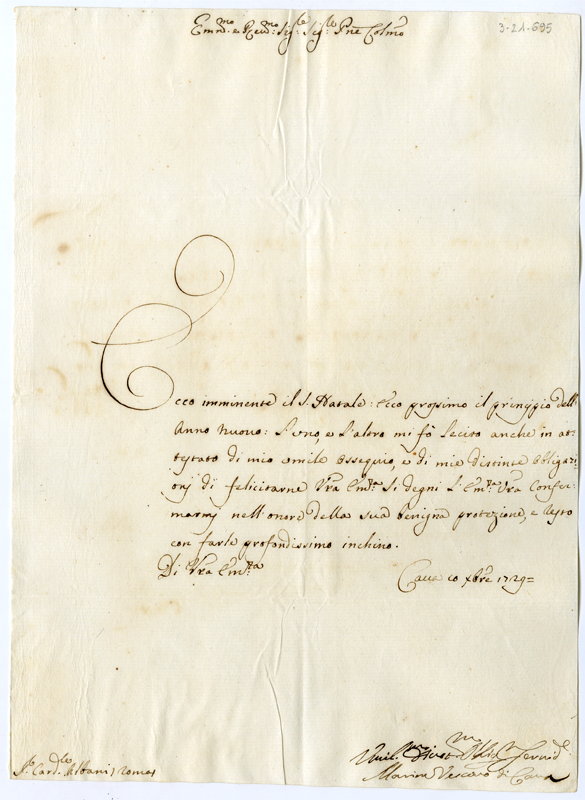 Em̃o e Reu.mo Sig.e Sig.e Prñe Colmo
3-21-695
Ecco imminente il S. Natale: Ecco prossimo il principio dell'
Anno nuouo: L'uno, e l'altro mi fò lecito anche in at=
testato di mio umile ossequio, e di mie distinte obligaz=
onj di felicitarne Vra Em.za Si degni l'Em.za Vra Confer=
marmj nell'onore della sua benigna protezione, e resto
con farle profondissimo inchino.
Di Vra Em.za
Caua 20 Xbre 1729=
Vmil.mo Diuot.mo Obl.mo Seruid.e
Marino Vescouo di Caua
S.r Card.le Albani Roma